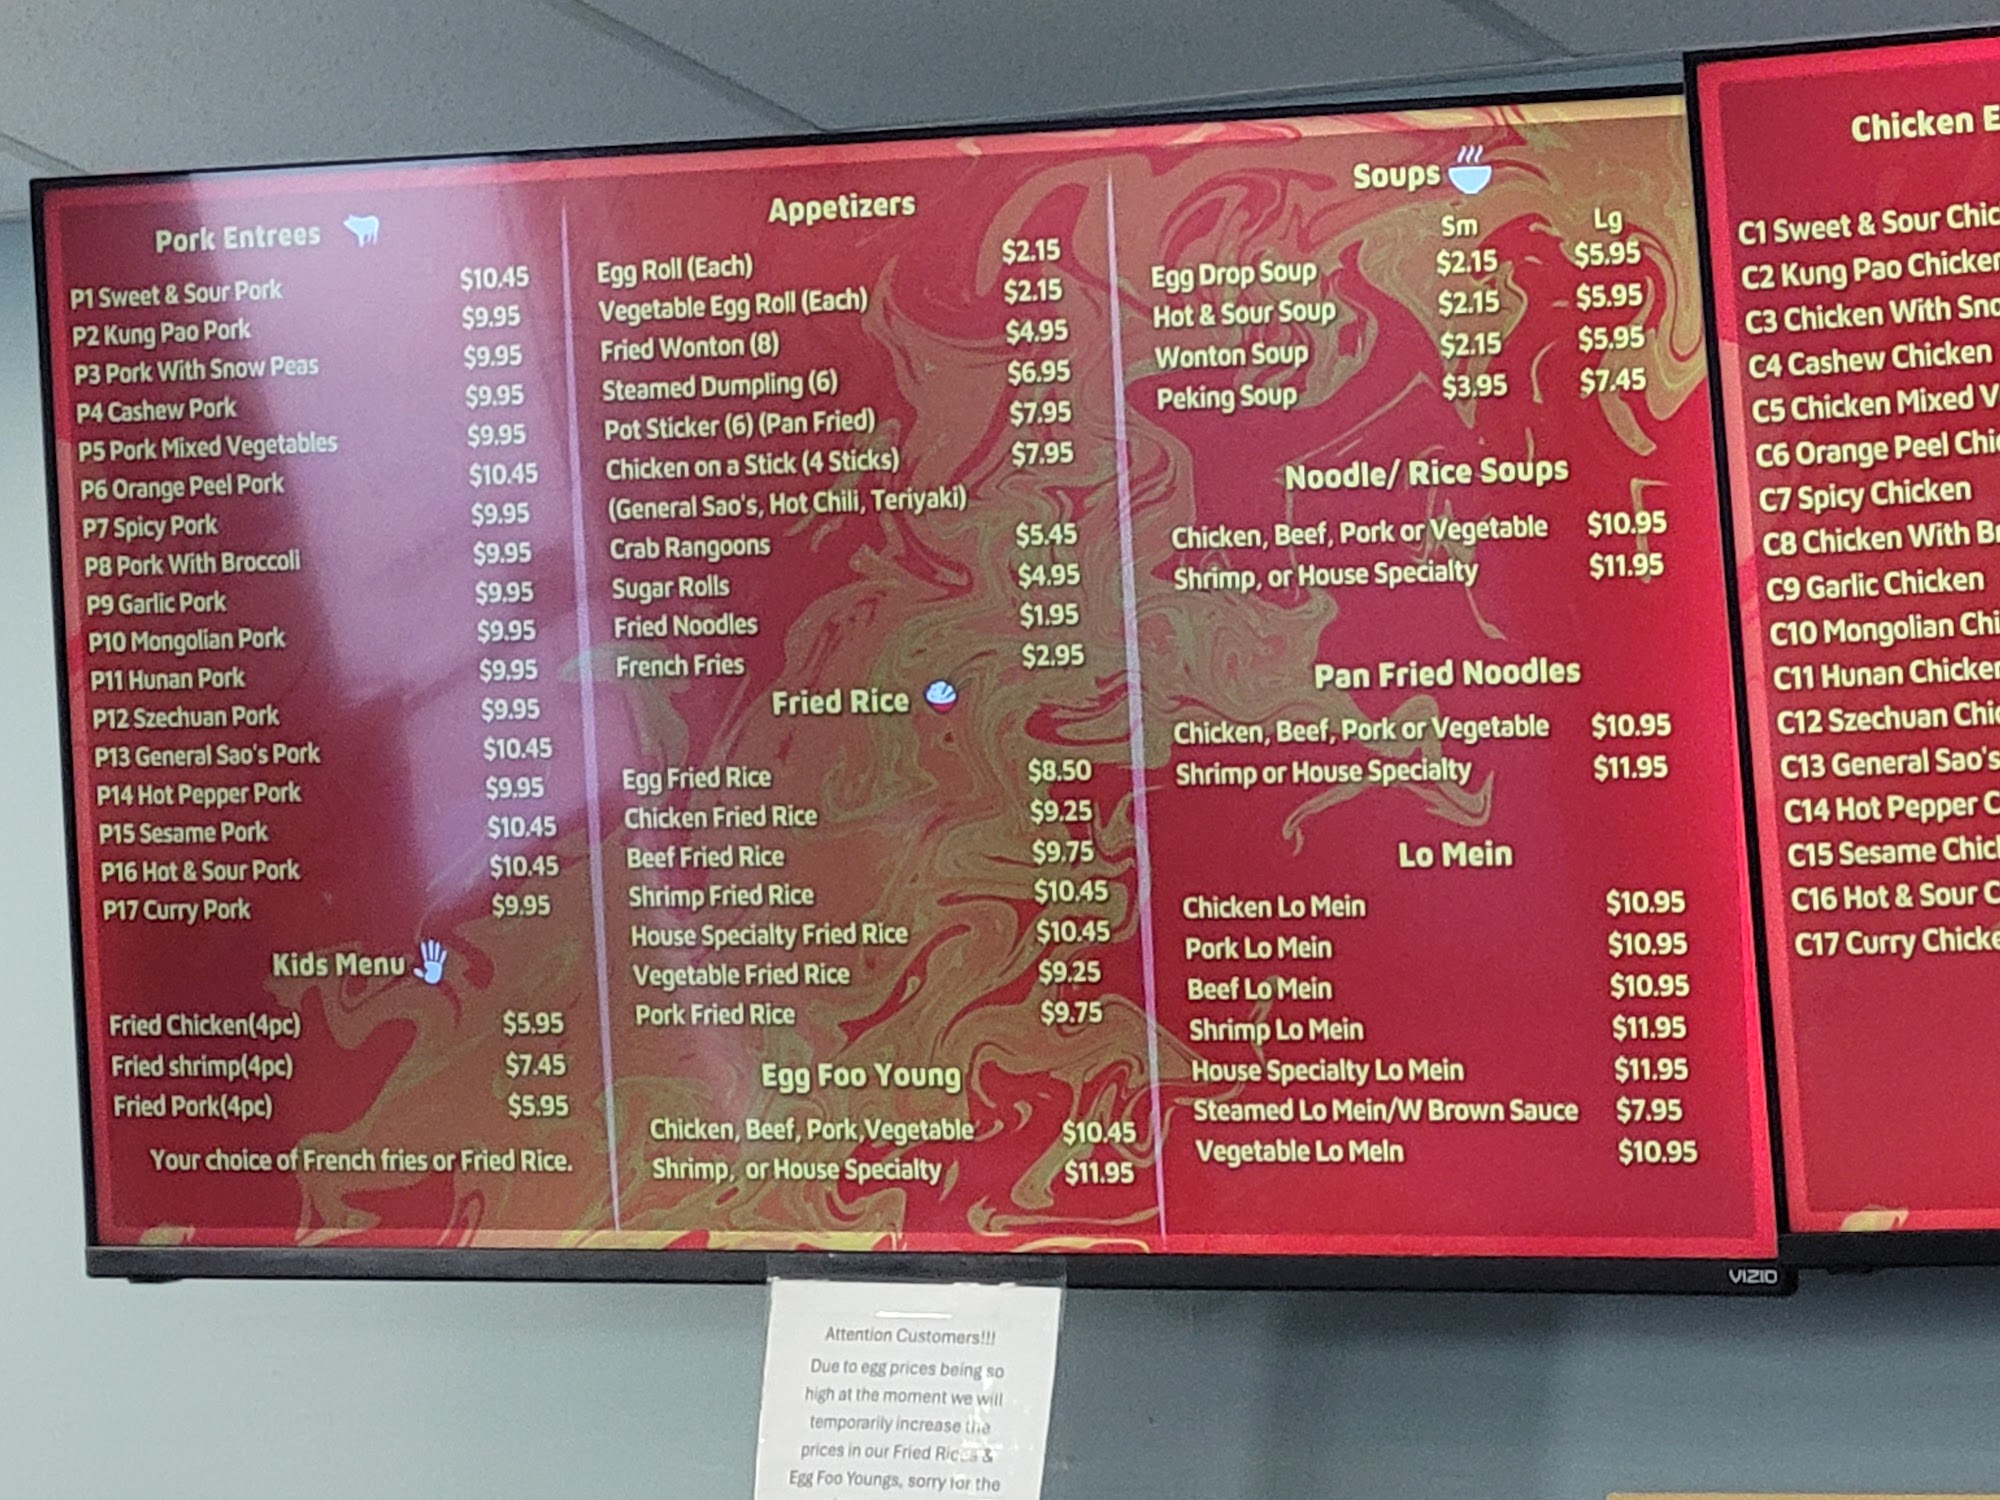 Pork Entrees
P1 Sweet & Sour Pork $10.45
P2 Kung Pao Pork $9.95
P3 Pork With Snow Peas $9.95
P4 Cashew Pork $9.95
P5 Pork Mixed Vegetables $9.95
P6 Orange Peel Pork $10.45
P7 Spicy Pork $9.95
P8 Pork With Broccoli $9.95
P9 Garlic Pork $9.95
P10 Mongolian Pork $9.95
P11 Hunan Pork $9.95
P12 Szechuan Pork $9.95
P13 General Sao's Pork $10.45
P14 Hot Pepper Pork $9.95
P15 Sesame Pork $10.45
P16 Hot & Sour Pork $10.45
P17 Curry Pork $9.95
Kids Menu
Fried Chicken(4pc) $5.95
Fried shrimp(4pc) $7.45
Fried Pork(4pc) $5.95
Your choice of French fries or Fried Rice.
Appetizers
Egg Roll (Each) $2.15
Vegetable Egg Roll (Each) $2.15
Fried Wonton (8) $4.95
Steamed Dumpling (6) $6.95
Pot Sticker (6) (Pan Fried) $7.95
Chicken on a Stick (4 Sticks) $7.95
(General Sao's, Hot Chili, Teriyaki)
Crab Rangoons $5.45
Sugar Rolls $4.95
Fried Noodles $1.95
French Fries $2.95
Fried Rice
Egg Fried Rice $8.50
Chicken Fried Rice $9.25
Beef Fried Rice $9.75
Shrimp Fried Rice $10.45
House Specialty Fried Rice $10.45
Vegetable Fried Rice $9.25
Pork Fried Rice $9.75
Egg Foo Young
Chicken, Beef, Pork,Vegetable $10.45
Shrimp, or House Specialty $11.95
Soups
Sm Lg
Egg Drop Soup $2.15 $5.95
Hot & Sour Soup $2.15 $5.95
Wonton Soup $2.15 $5.95
Peking Soup $3.95 $7.45
Noodle/ Rice Soups
Chicken, Beef, Pork or Vegetable $10.95
Shrimp, or House Specialty $11.95
Pan Fried Noodles
Chicken, Beef, Pork or Vegetable $10.95
Shrimp or House Specialty $11.95
Lo Mein
Chicken Lo Mein $10.95
Pork Lo Mein $10.95
Beef Lo Mein $10.95
Shrimp Lo Mein $11.95
House Specialty Lo Mein $11.95
Steamed Lo Mein/W Brown Sauce $7.95
Vegetable Lo MeIn $10.95
VIZIO
Chicken E
C1 Sweet & Sour Chic
C2 Kung Pao Chicken
C3 Chicken With Sno
C4 Cashew Chicken
C5 Chicken Mixed V
C6 Orange Peel Chi
C7 Spicy Chicken
C8 Chicken With Br
C9 Garlic Chicken
C10 Mongolian Chi
C11 Hunan Chicken
C12 Szechuan Chic
C13 General Sao's
C14 Hot Pepper C
C15 Sesame Chic
C16 Hot & Sour C
C17 Curry Chicke
Attention Customers!!!
Due to egg prices being so
high at the moment we will
temporarily increase the
prices in our Fried Rices &
Egg Foo Youngs, sorry for the